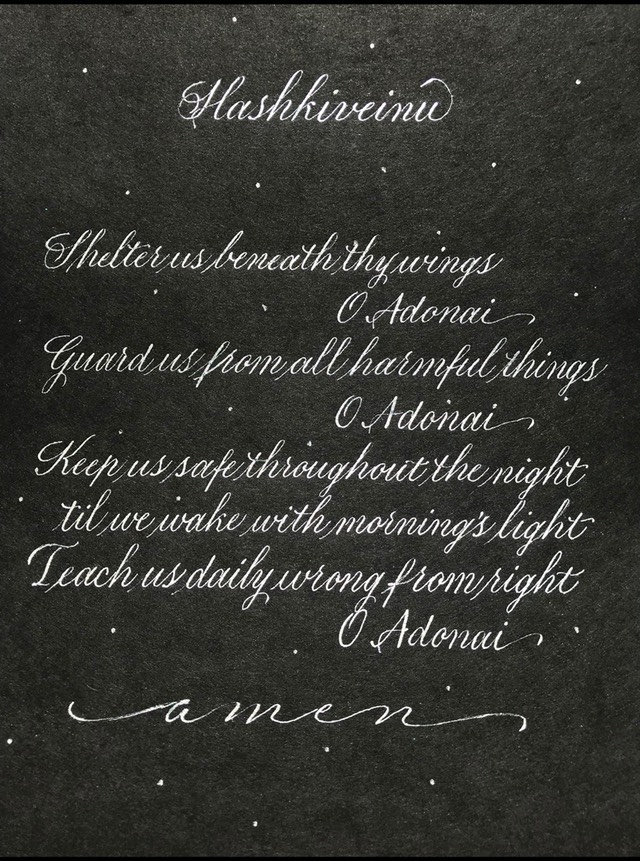 Hashkiveinu
Shelter us beneath thy wings
O Adonai
Guard us from all harmful things
O Adonai
Keep us safe throughout the night
til we wake with morning's light
Teach us daily wrong from right
O Adonai
amen